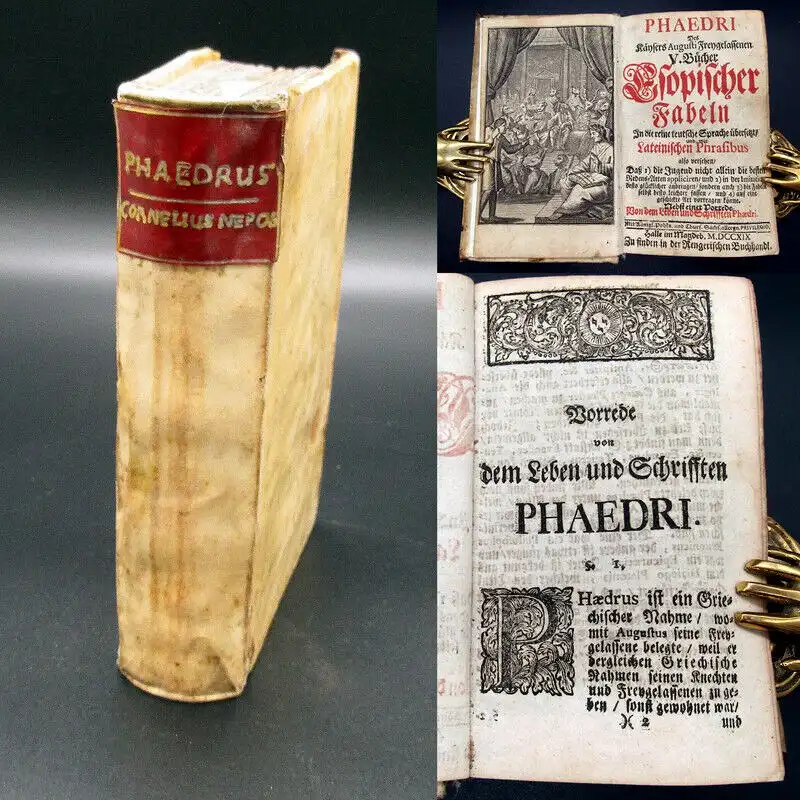 PHAEDRUS
CORNELIUS NEPOS
PHAEDRI
Des
Käysers Augusti Freygelassenen
V. Bücher
Esopischer
Fabeln
In die reine teutsche Sprache übersetzt/
und mit
Lateinischen Phrasibus
also versehen/
Daß 1) die Jugend nicht allein die besten
Redens-Arten appliciren/ und 2) in der Imitation
desto glücklicher anbringen/ sondern auch 3) die Fabeln
selbst desto leichter fassen/ und 4) auf eine
geschickte Art vortragen könne.
Nebst einer Vorrede
Von dem Leben und Schrifften Phædri.
Mit Königl. Pohln. und Churf. Sächs. allergn. PRIVILEGIO.
Halle im Magdeb. M.DCCXIX
Zu finden in der Rengerischen Buchhandl.
Vorrede
von
dem Leben und Schrifften
PHAEDRI.
§. 1.
PHædrus ist ein Grie-
chischer Nahme / wo-
mit Augustus seine Frey-
gelassene belegte / weil er
dergleichen Griechische
Nahmen seinen Knechten
und Freygelassenen zu ge-
ben / sonst gewohnet war/
)( 2 und